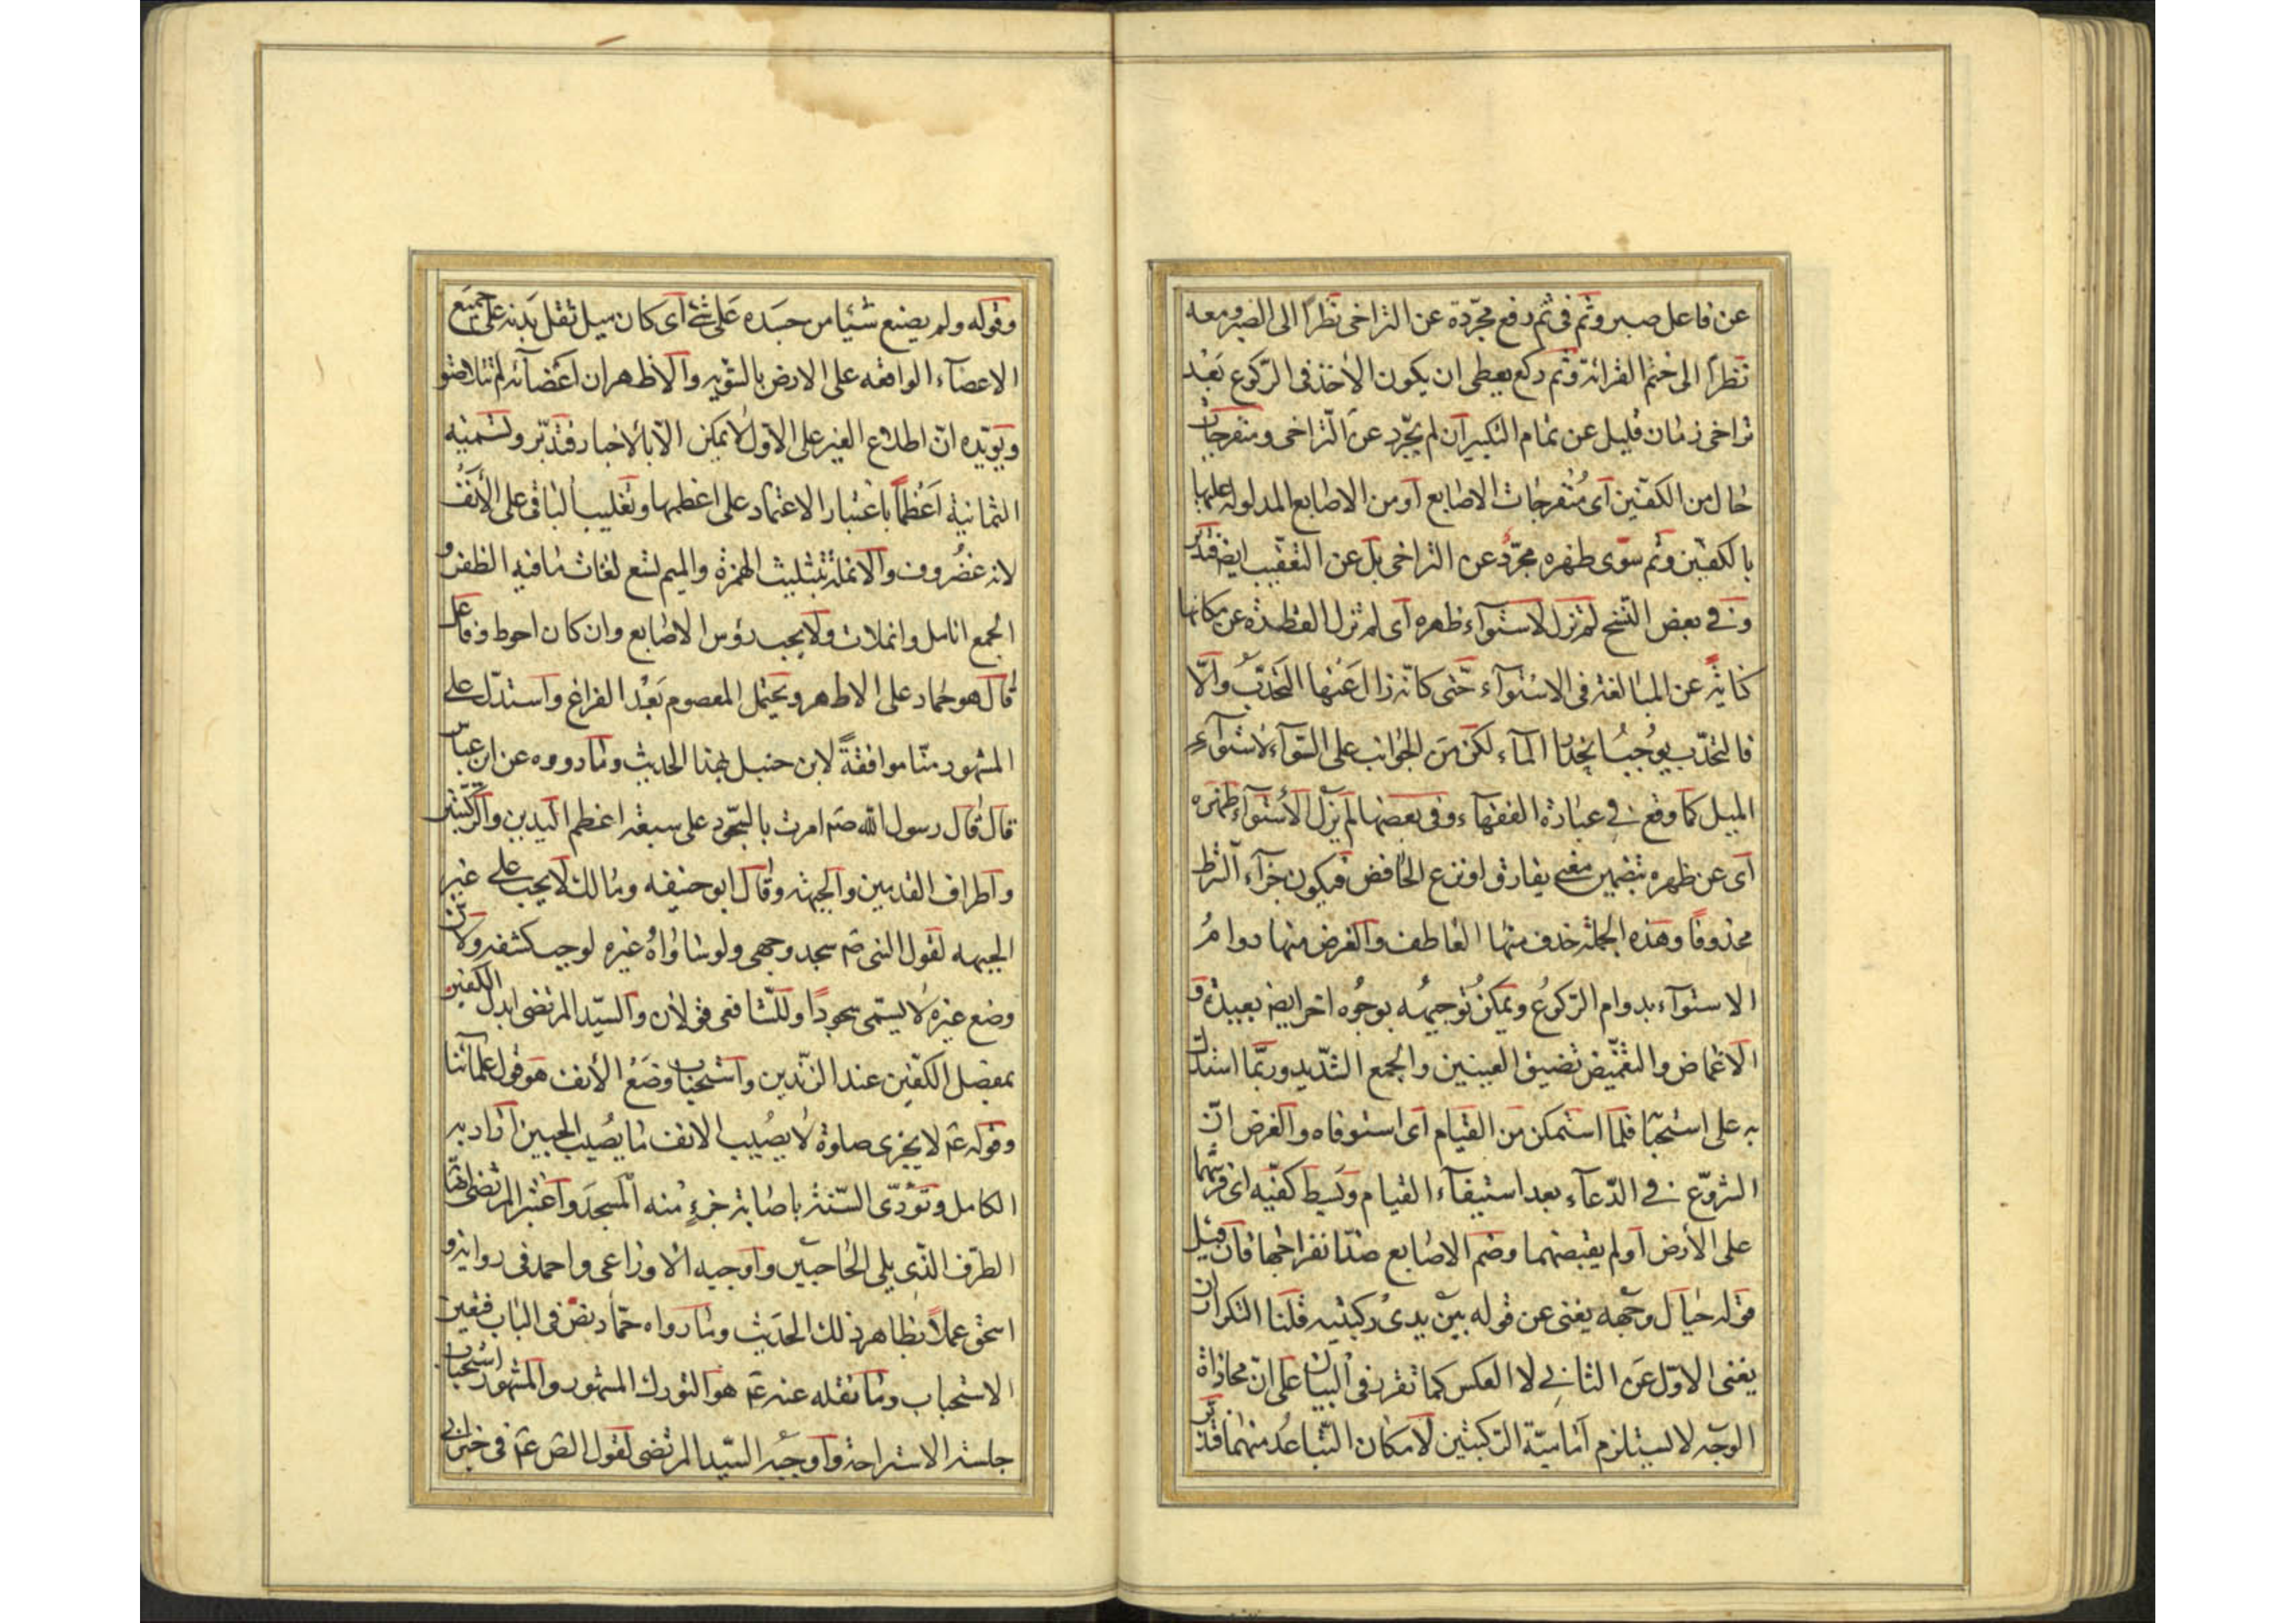 عن فاعل صبر وثم فى ثم رفع مجرّدة عن التراخى نظرًا الى الضرو معه
نظرًا الى ختم القرائة وثم ركع يعطى ان يكون الأخذ فى الرّكوع بَعْد
تراخى زمان قليل عن تمام التكبير ان لم يجّرد عن التّراخى ومنفرجات
حال من الكفّين أى مُنفرجات الاصابع أو من الاصابع المدلولة عليها
بالكفين وثم سوّى ظهره مجرّد عن التراخى بل عن التعقيب ايضا فتدبّر
وفى بعض النّسخ لم تزل لاستوآء ظهره أى لم تزل القطرة عن مكانها
كناية عن المبالغة فى الاستوآء حتّى كانّه زال عَنها التحَدّب والّا
فالتحدّب يوجبُ انحدار المآء لكن من الجوانب على السّوآء لاستوآء
الميل كما وقع فى عبارة الفقهآء وفى بعضها لم يزل الأستوآء ظهره
أى عن ظهره بتضمين معنى يفارق او نزع الخافض فيكون جزآء الشرط
محذوفًا وهذه الجملة حذف منها العاطف والغرض منها دوامُ
الاستوآء بدوام الرّكوع ويمكن تُوجيهُه بوجُوه اخر ايضا بعيدة و
الاغماض والتغمّيض تضييق العينين والجمع الشّديد وربّما استدل
به على استحبا فلما استمكن من القيام أى استوفاه والغرض انّ
الشروّع فى الدّعآء بعد استيفآء القيام وبَسط كفّيه اى فرشهما
على الأرض أو لم يقبضهما وضم الاصابع ضدّ انفراجها فان قيل
قوله حيال وجهه يغنى عن قوله بين يدى ركبتيه قلنا التكرار ان
يغنى الاوّل عَن الثانى لا العكس كما تقرر فى البيان على انّ محاذاة
الوجه لا يستلزم أماميّة الرّكبتين لامكان التّباعُد منهما فتدبّر
وقوله ولم يضع شيئا من جسَده عَلى شئ أى كان ميل ثقل بَدنه على جميَع
الاعضآء الواقعه على الارض بالسّويه والاظهر ان أعْضآئه لم تتلاصق و
ويؤيّده انّ اطلاع الغير على الاوّل لا يمكن الّا بالأخبار فتدبّر وتسميته
الثمانية اَعْظمًا باعتبار الاعتماد على اعظمها وتغليب الباقى على الأنف
لانه غضُروف والانملة بتثليث الهمزة والميم تسع لغات ما فيه الظفر و
الجمع انامل وانملات ولا يجب رؤس الاصابع وان كان احوط وفاعل
قال هو حماد على الاظهر ويحتمل المعصوم بَعْد الفراغ واستدلّ على
المشهور منّا موافقةً لابن حنبل بهذا الحديث وما رووه عن ابن عبّاس
قال قال رسول الله صم امرت بالسّجود على سبعة اعظم اليدين والركبتين
واطراف القدمين والجبهة وقال ابو حنيفه ومالك لا يجب على غير
الجبهه لقول النبى صم سجد وجهى ولو ساواهُ غيره لوجب كشفه ولان
وضع غيره لا يسمّى سجودًا وللشّافعى قولان والسيّد المرتضى ابدل الكفين
بمفصل الكفّين عند الزّندين واستحباب وضعُ الأنف هو قول علمآئنا
وقوله عم لا يجزى صلوة لا يصُيب الانف ما يصُيب الجبين اراد به
الكامل وتؤدّى السّنة باصابة جزءٍ منه المسجدَ واعتبر المرتضى هنا
الطّرف الذّى يلى الحاجبيّن وأوجبه الاوزاعى واحمد فى رواية و
اسحق عملًا بظاهر ذلك الحَديث وما رواه حمّاد نصّ فى الباب فتعين
الاستحباب وما نقله عنه عم هو التورك المشهور والمشهور استحباب
جلسة الاستراحة وأوجبَه السّيد المرتضى لقول الصّ عم فى خبر ابى